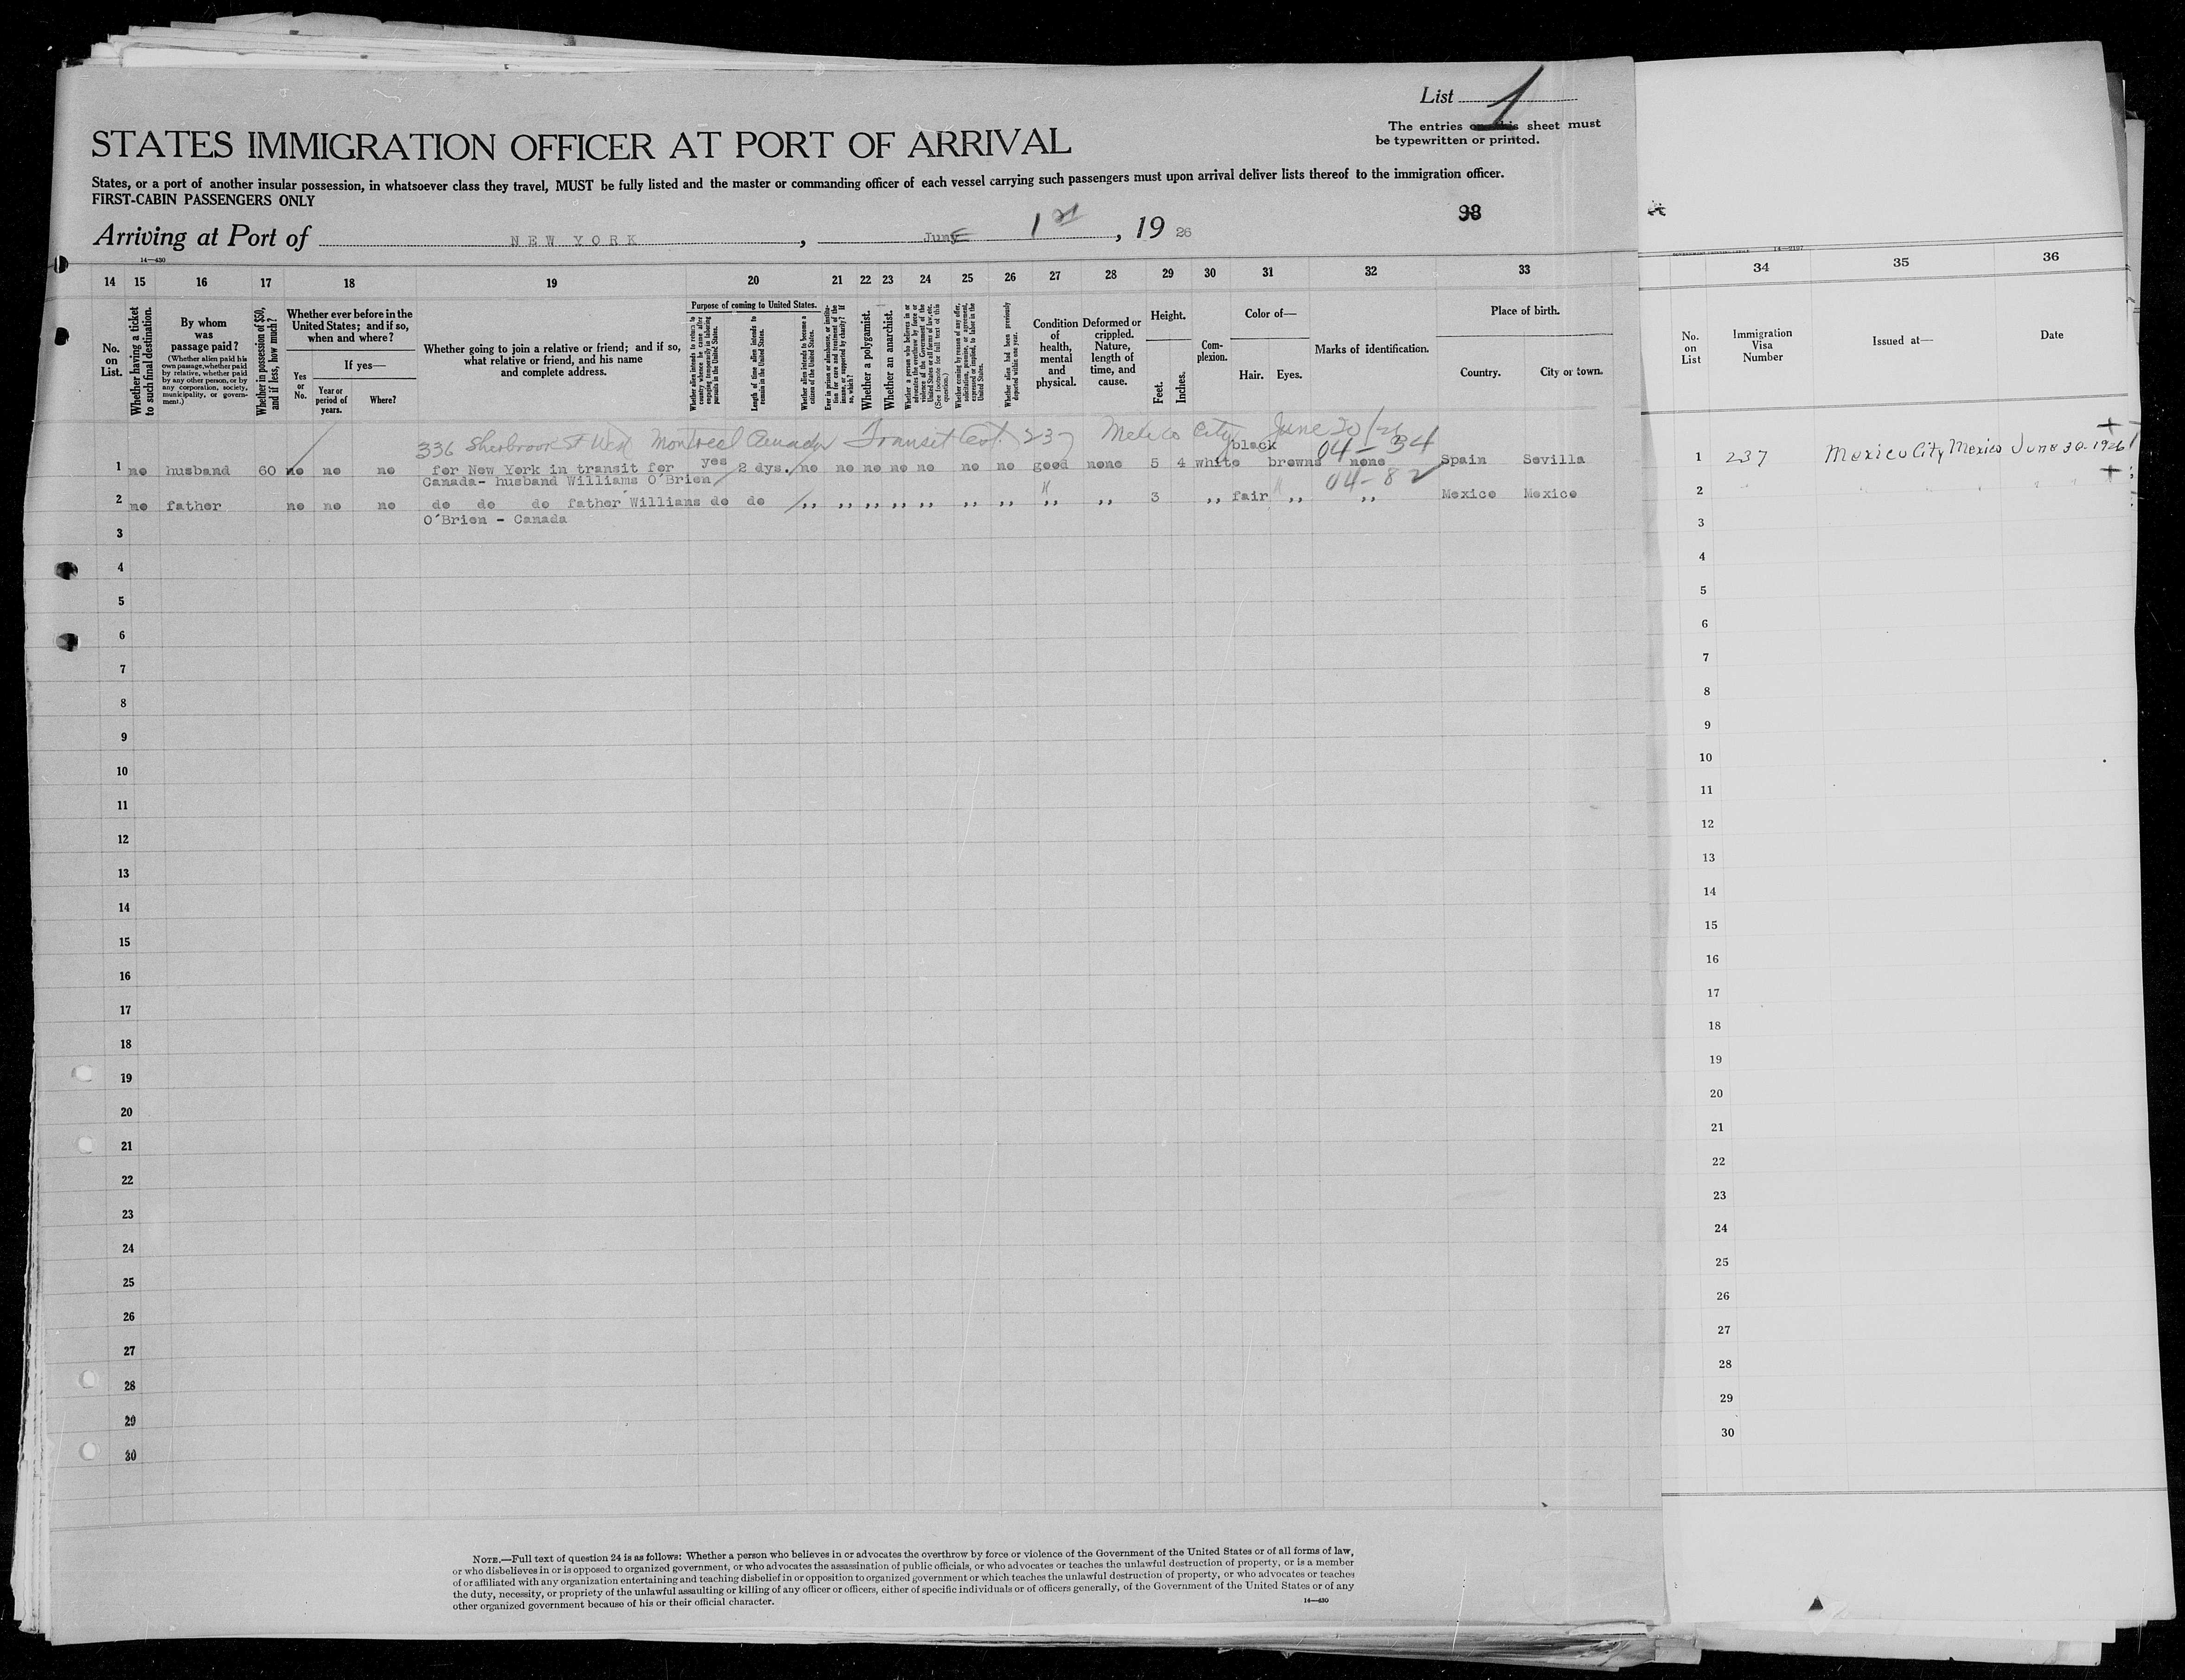 List 1
The entries on this sheet must
be typewritten or printed.
STATES IMMIGRATION OFFICER AT PORT OF ARRIVAL
States, or a port of another insular possession, in whatsoever class they travel, MUST be fully listed and the master or commanding officer of each vessel carrying such passengers must upon arrival deliver lists thereof to the immigration officer.
FIRST-CABIN PASSENGERS ONLY
98
Arriving at Port of NEW YORK, June 1st, 19 26
14—430
14—2197
14 15 16 17 18 19 20 21 22 23 24 25 26 27 28 29 30 31 32 33
34 35 36
No. on List.
Whether having a ticket to such final destination.
By whom was passage paid?
(Whether alien paid his own passage, whether paid by relative, whether paid by any other person, or by any corporation, society, municipality, or government.)
Whether in possession of $50, and if less, how much?
Whether ever before in the United States; and if so, when and where?
Yes or No.
If yes—
Year or period of years.
Where?
Whether going to join a relative or friend; and if so, what relative or friend, and his name and complete address.
Purpose of coming to United States.
Whether alien intends to return to country whence he came after engaging temporarily in laboring pursuits in the United States.
Length of time alien intends to remain in the United States.
Whether alien intends to become a citizen of the United States.
Ever in prison or almshouse, or institution for care and treatment of the insane, or supported by charity? If so, which?
Whether a polygamist.
Whether an anarchist.
Whether a person who believes in or advocates the overthrow by force or violence of the Government of the United States or all forms of law, etc. (See footnote for full text of this question.)
Whether coming by reason of any offer, solicitation, promise, or agreement, expressed or implied, to labor in the United States.
Whether alien had been previously deported within one year.
Condition of health, mental and physical.
Deformed or crippled. Nature, length of time, and cause.
Height.
Feet.
Inches.
Complexion.
Color of—
Hair.
Eyes.
Marks of identification.
Place of birth.
Country.
City or town.
No. on List
Immigration Visa Number
Issued at—
Date
336 Sherbrook St West Montreal Canada Transit Cert. 237 Mexico City June 30/26
black 04-34
1 no husband 60 no no no for New York in transit for yes 2 dys. no no no no no no no good none 5 4 white browns none Spain Sevilla
Canada- husband Williams O'Brien
04-82
2 no father no no no do do do father Willians do do ,, ,, ,, ,, ,, ,, ,, ,, ,, 3 ,, fair ,, ,, Mexico Mexico
O'Brien - Canada
3
4
5
6
7
8
9
10
11
12
13
14
15
16
17
18
19
20
21
22
23
24
25
26
27
28
29
30
1 237 Mexico City Mexico June 30-1926
2
3
4
5
6
7
8
9
10
11
12
13
14
15
16
17
18
19
20
21
22
23
24
25
26
27
28
29
30
NOTE.—Full text of question 24 is as follows: Whether a person who believes in or advocates the overthrow by force or violence of the Government of the United States or of all forms of law,
or who disbelieves in or is opposed to organized government, or who advocates the assassination of public officials, or who advocates or teaches the unlawful destruction of property, or is a member
of or affiliated with any organization entertaining and teaching disbelief in or opposition to organized government or which teaches the unlawful destruction of property, or who advocates or teaches
the duty, necessity, or propriety of the unlawful assaulting or killing of any officer or officers, either of specific individuals or of officers generally, of the Government of the United States or of any
other organized government because of his or their official character.
14—430